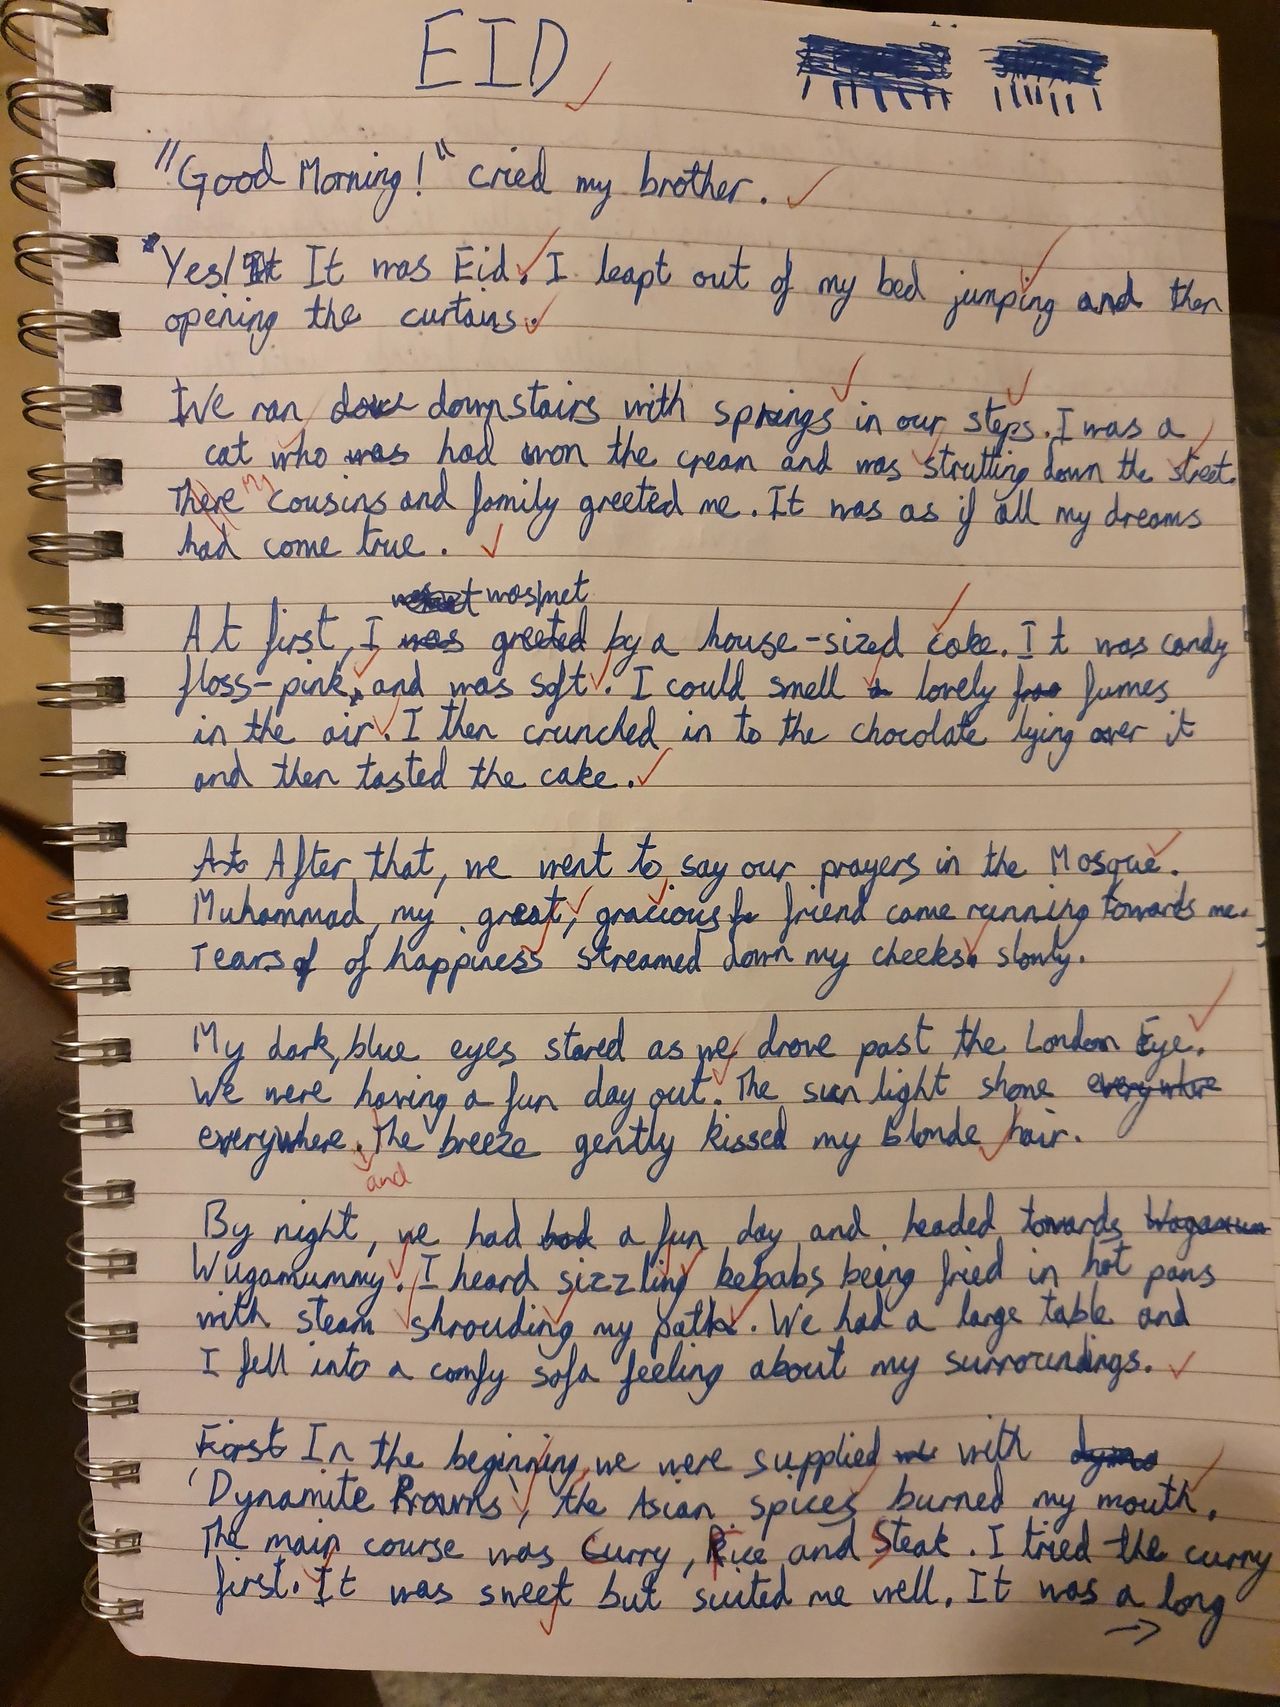 EID
"Good Morning!" cried my brother.
Yes! It was Eid. I leapt out of my bed jumping and then
opening the curtains.
We ran downstairs with springs in our steps. I was a
cat who had won the cream and was strutting down the street.
There My cousins and family greeted me. It was as if all my dreams
had come true.
was met
At first, I greeted by a house-sized cake. It was candy
floss-pink, and was soft. I could smell lovely fumes
in the air. I then crunched in to the chocolate lying over it
and then tasted the cake.
After that, we went to say our prayers in the Mosque.
Muhammad, my great, gracious friend came running towards me.
Tears of happiness streamed down my cheeks slowly.
My dark, blue eyes stared as we drove past the London Eye.
We were having a fun day out. The sun light shone
everywhere. The breeze gently kissed my blonde hair.
and
By night, we had a fun day and headed towards
Wugamummy. I heard sizzling kebabs being fried in hot pans
with steam shrouding my path. We had a large table and
I fell into a comfy sofa feeling about my surroundings.
In the beginning, we were supplied with
'Dynamite Prawns', the Asian spices burned my mouth.
The main course was Curry, Rice and Steak. I tried the curry
first. It was sweet but suited me well. It was a long
→